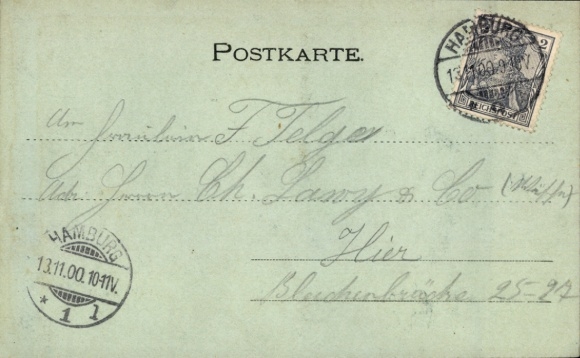 POSTKARTE.
HAMBURG
13.11.00.9-10V.
2
REICHSPOST
Fräulein F Telge
Adr: Herrn Ch. Lavy & Co
Hier
Bleichenbrücke 25-27
HAMBURG
13.11.00.10-11V.
* 1 l